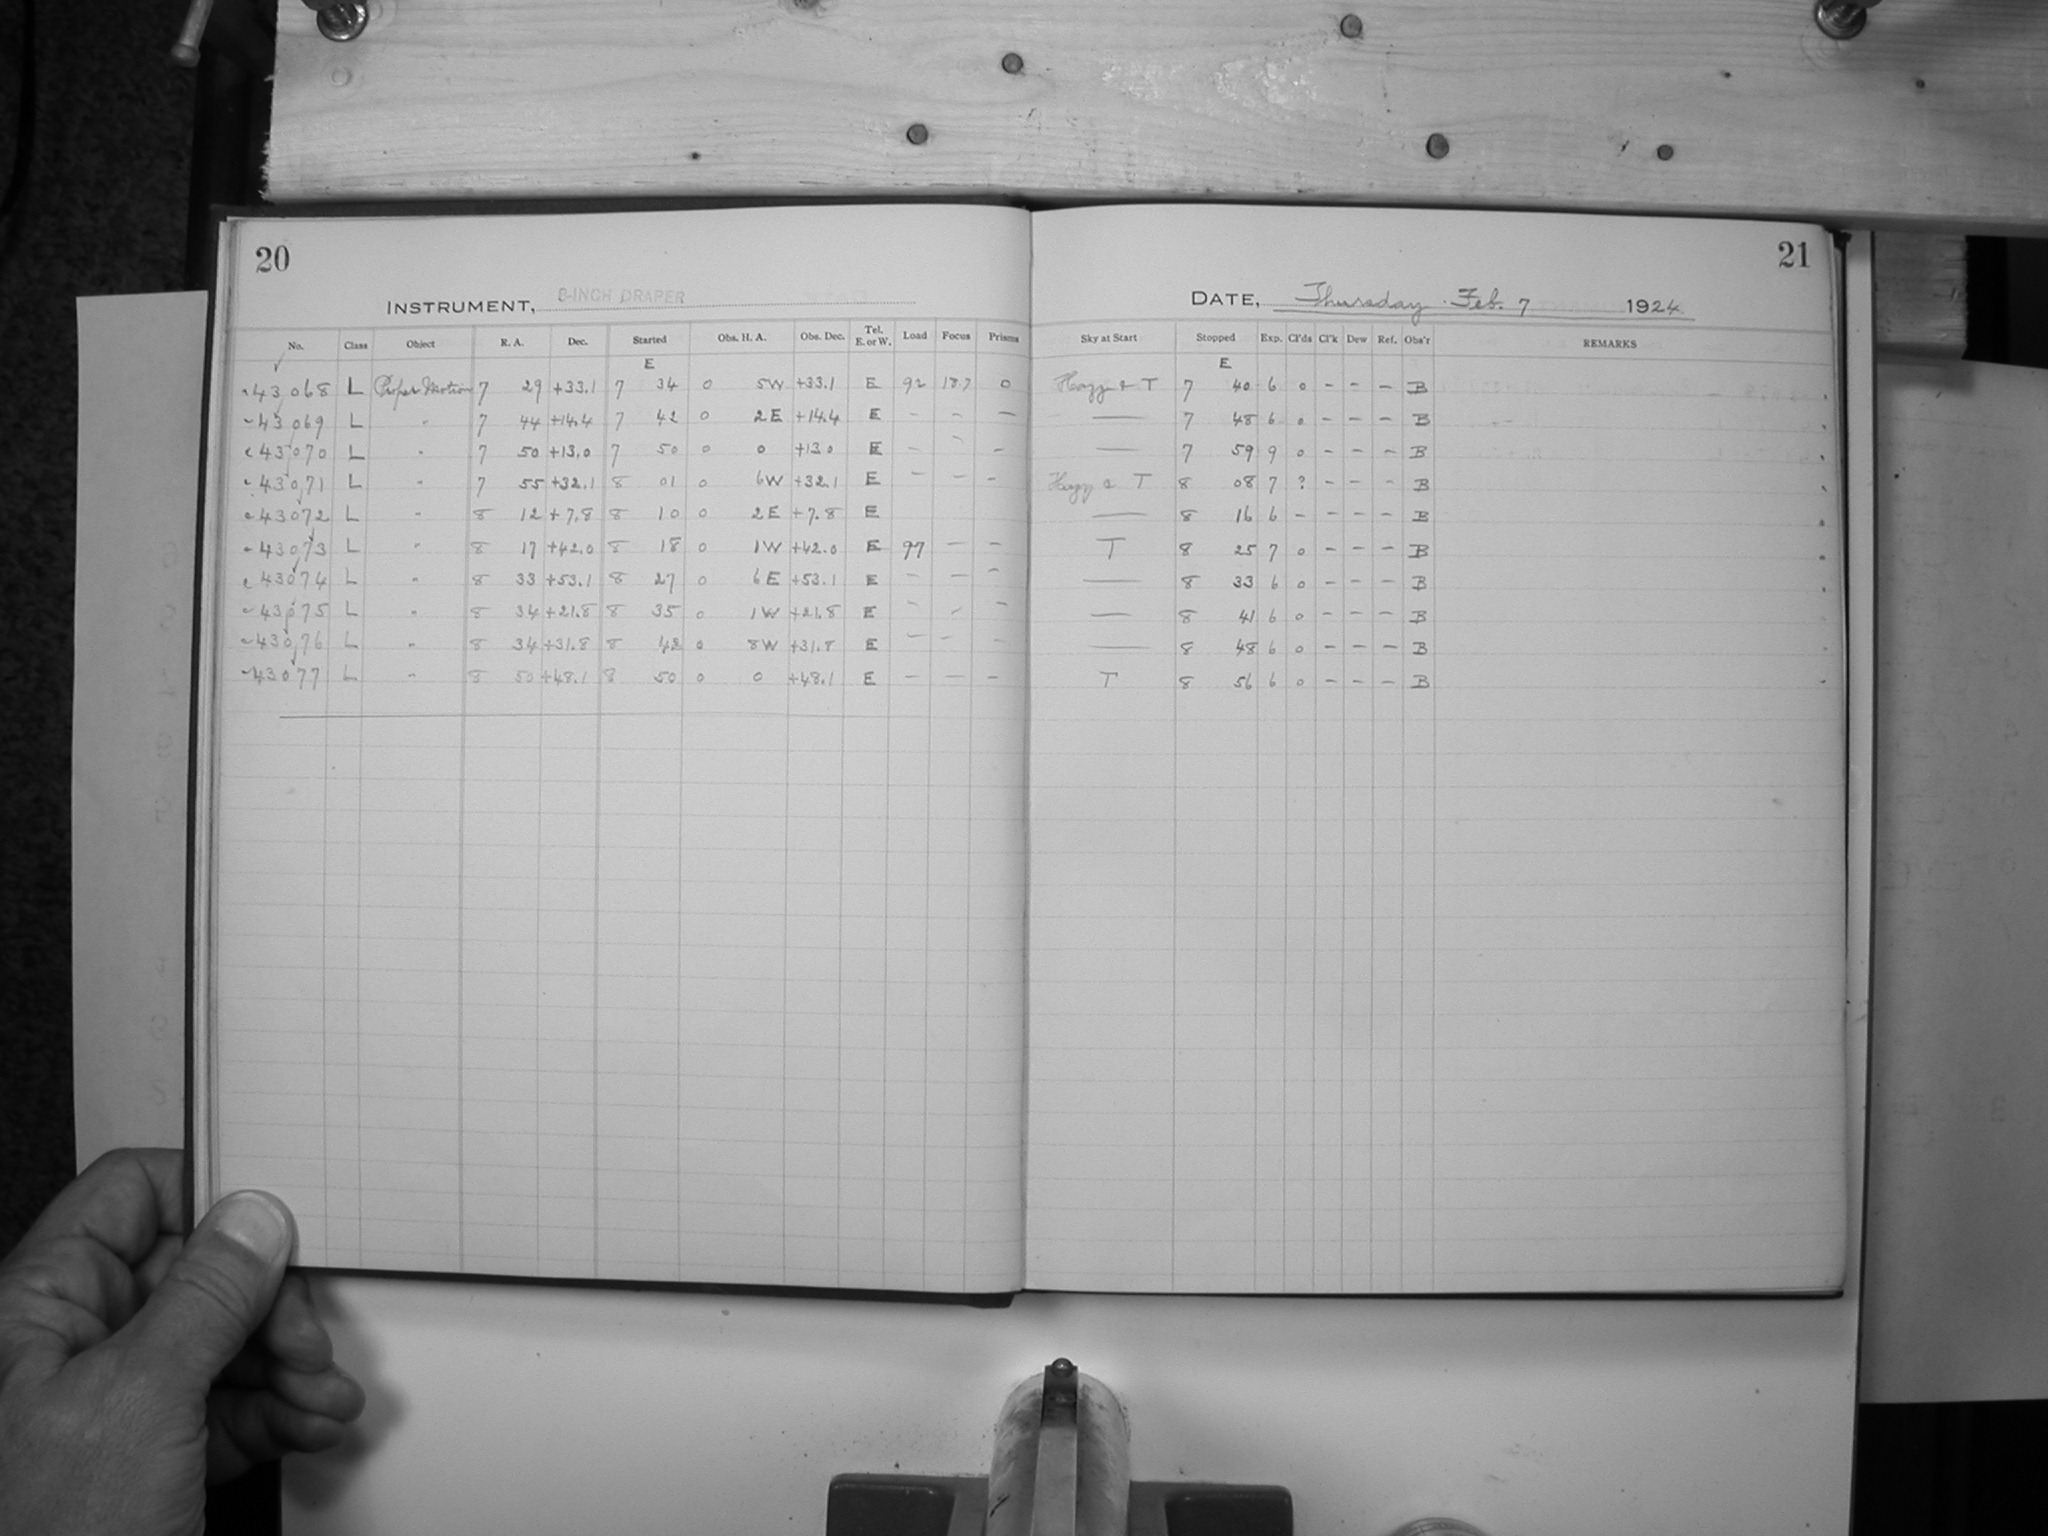 20
INSTRUMENT, 8-INCH DRAPER
No. Class Object R. A. Dec. Started Obs. H. A. Obs. Dec. Tel. E. or W. Load Focus Prisms
E
43068 L Proper Motion 7 29 +33.1 7 34 0 5W +33.1 E 92 18.7 0
43069 L " 7 44 +14.4 7 42 0 2E +14.4 E - - -
43070 L " 7 50 +13.0 7 50 0 0 +13.0 E - - -
43071 L " 7 55 +32.1 8 01 0 6W +32.1 E - - -
43072 L " 8 12 +7.8 8 10 0 2E +7.8 E
43073 L " 8 17 +42.0 8 18 0 1W +42.0 E 97 - -
43074 L " 8 33 +53.1 8 27 0 6E +53.1 E - - -
43075 L " 8 34 +21.8 8 35 0 1W +21.8 E - - -
43076 L " 8 34 +31.8 8 42 0 8W +31.8 E - - -
43077 L " 8 50 +48.1 8 50 0 0 +48.1 E - - -
21
DATE, Thursday Feb. 7 1924
Sky at Start Stopped Exp. Cl'ds Cl'k Dew Ref. Obs'r REMARKS
E
Hazy & T 7 40 6 0 - - - B
— 7 48 6 0 - - - B
— 7 59 9 0 - - - B
Hazy & T 8 08 7 ? - - - B
— 8 16 6 - - - - B
T 8 25 7 0 - - - B
— 8 33 6 0 - - - B
— 8 41 6 0 - - - B
— 8 48 6 0 - - - B
T 8 56 6 0 - - - B